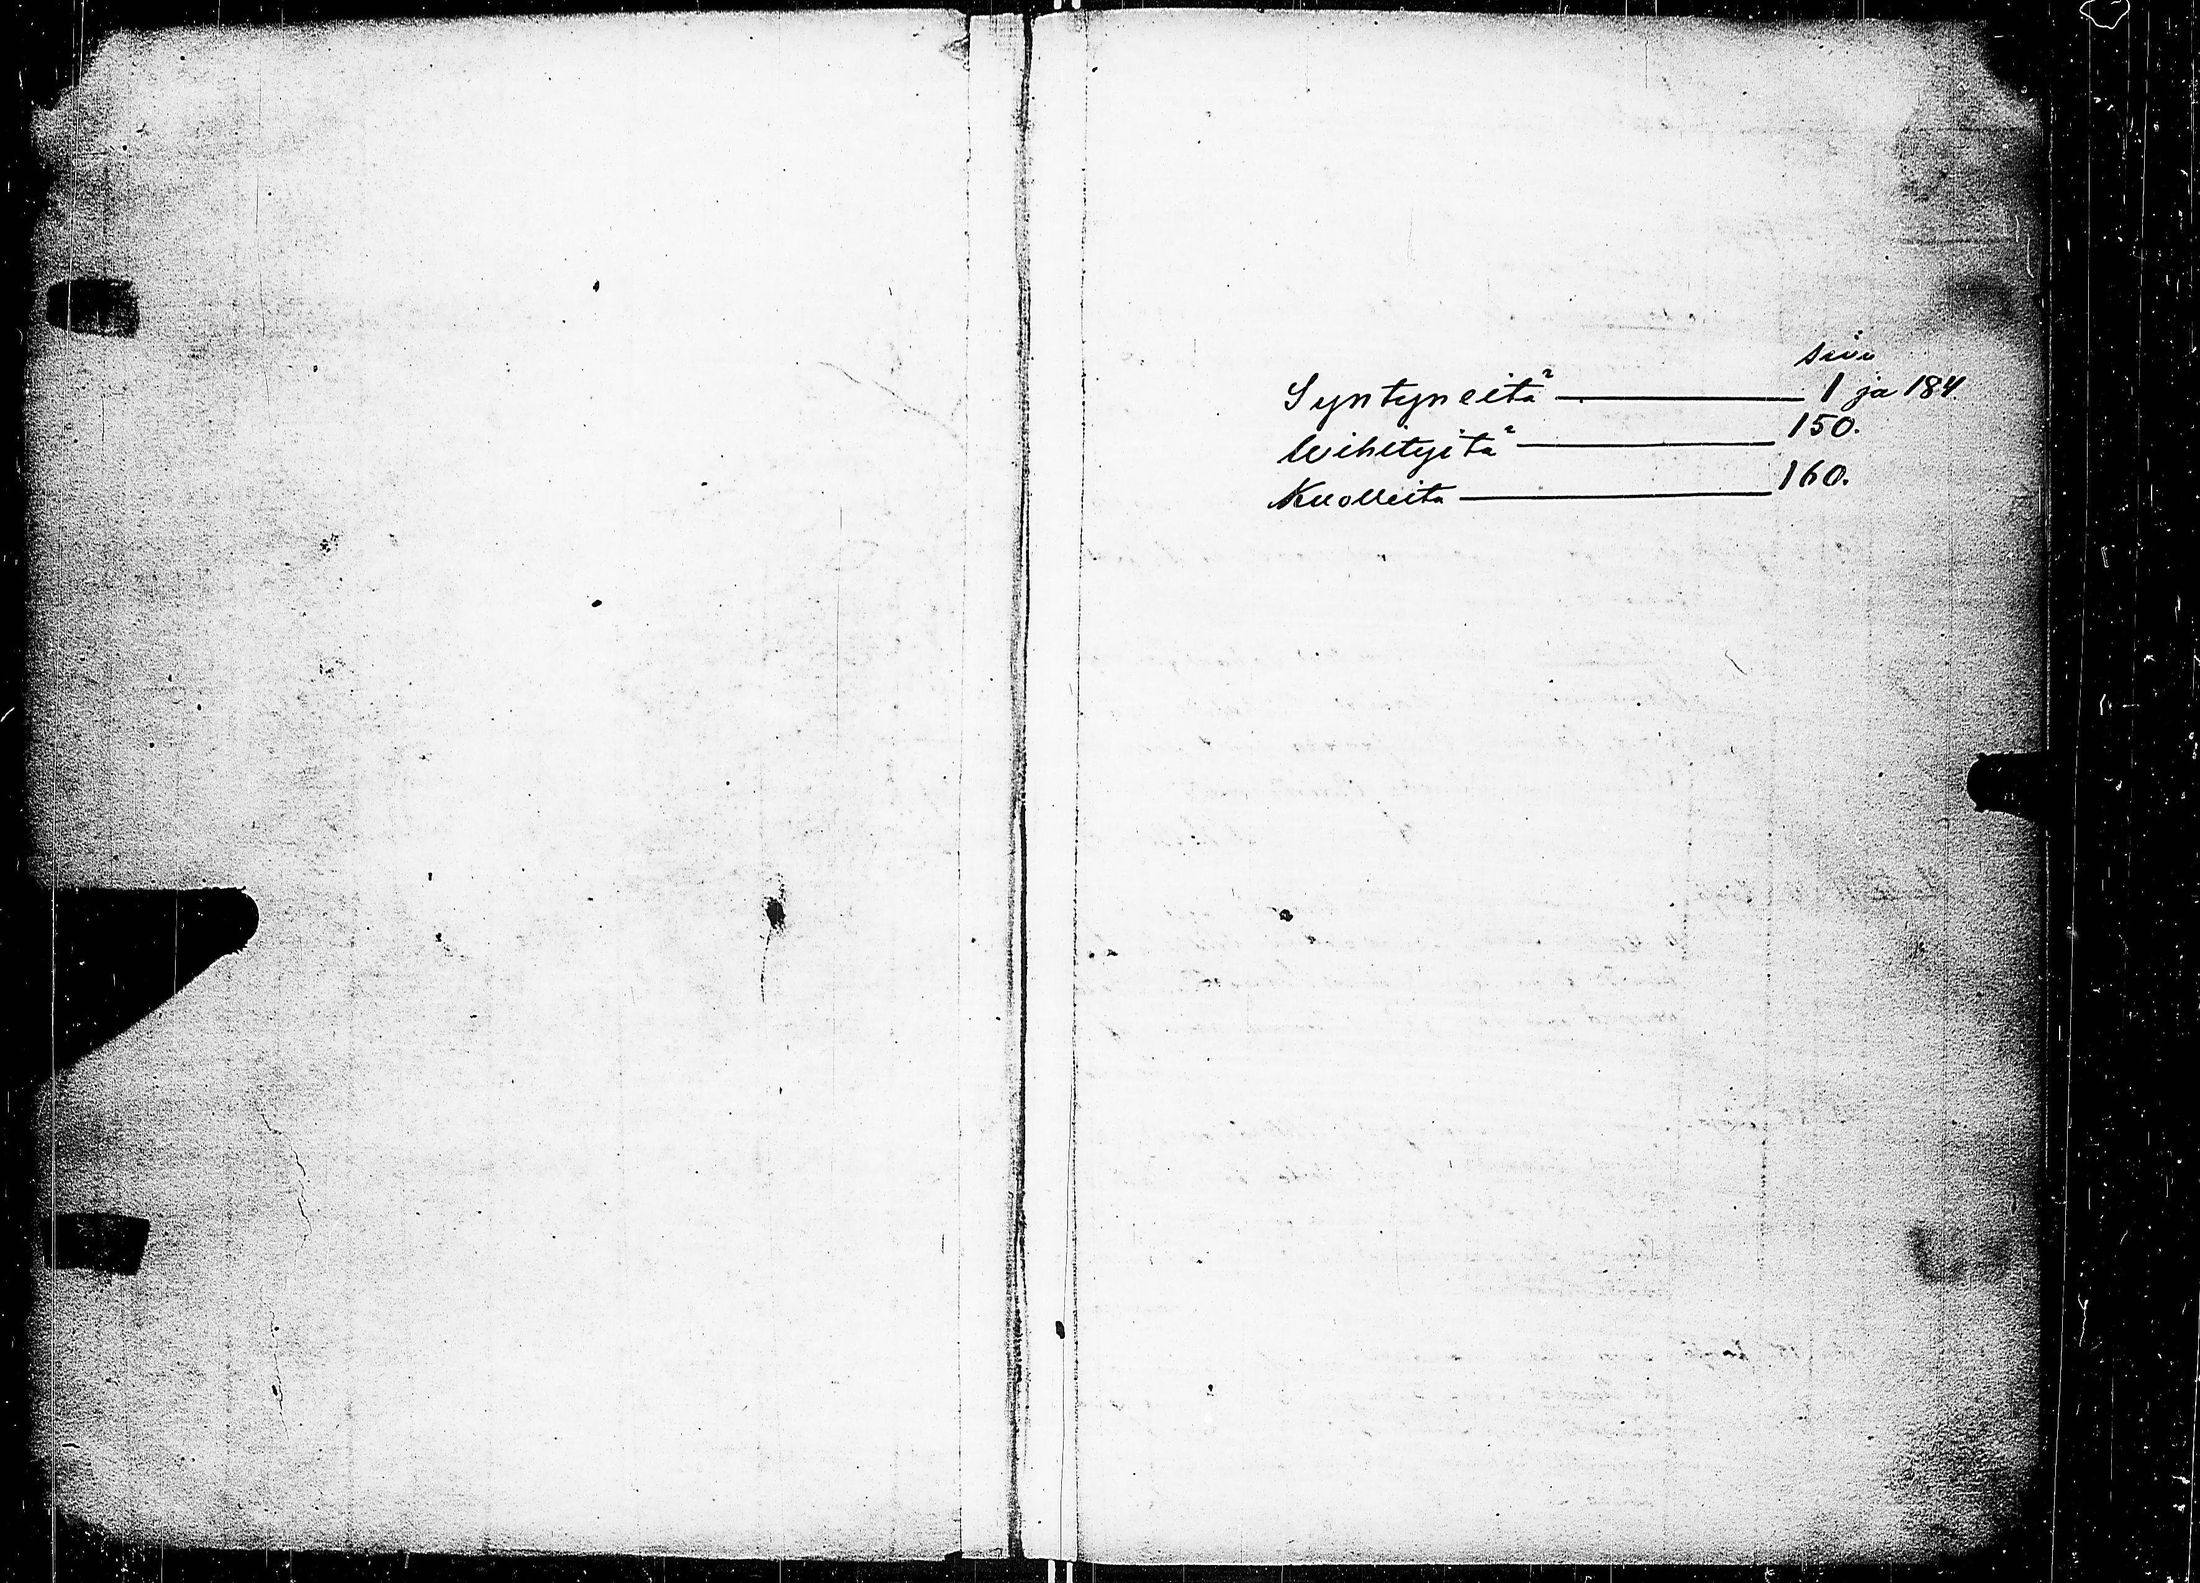 sivu
Syntyneitä 1 ja 184.
Wihityitä 150.
Kuolleita 160.